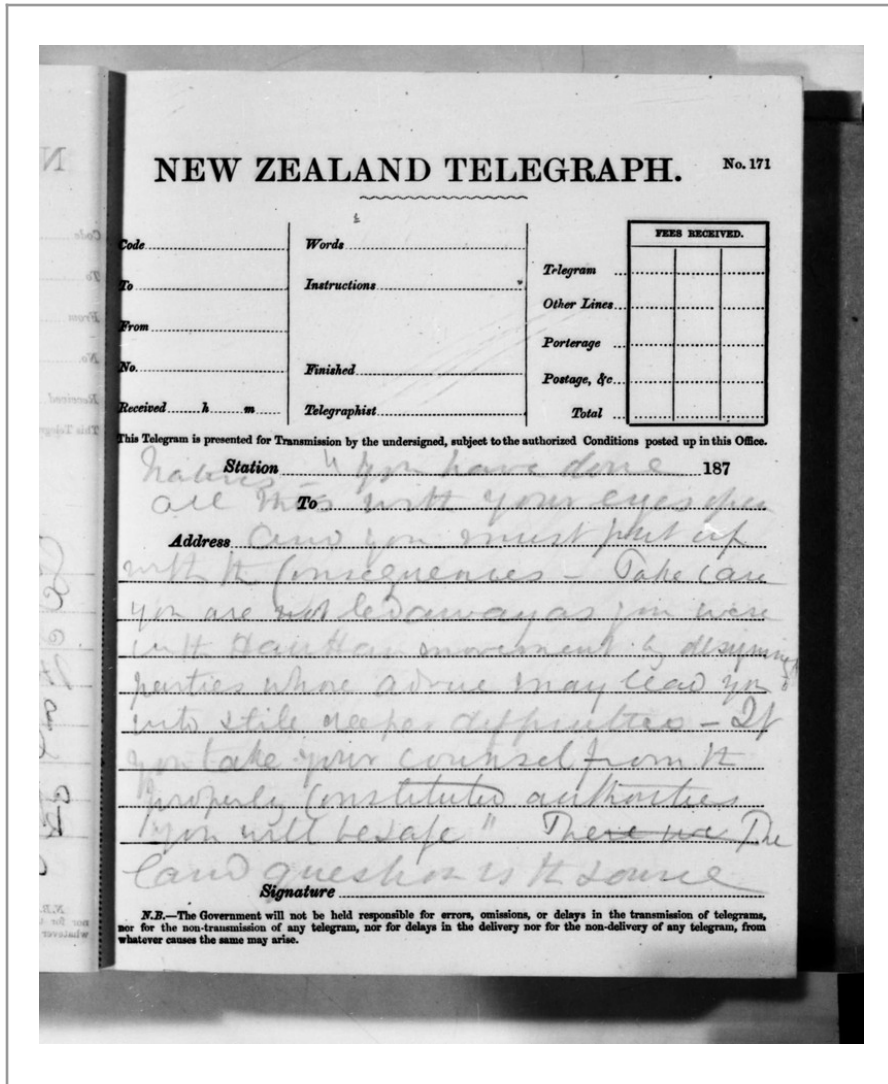 NEW ZEALAND TELEGRAPH.
No. 171
Code
To
From
No.
Received h m
Words
Instructions
Finished
Telegraphist
FEES RECEIVED.
Telegram
Other Lines
Porterage
Postage, &c
Total
This Telegram is presented for Transmission by the undersigned, subject to the authorized Conditions posted up in this Office.
Station 187
To
Address
Natives - "you have done
all this with your eyes open
and you must put up
with the consequences - Take care
you are not led away as you were
in the Hau Hau movement by designing
parties whose advice may lead you
into still deeper difficulties - If
you take your counsel from the
properly constituted authorities
you will be safe" There we The
land question is the source
Signature
N.B.—The Government will not be held responsible for errors, omissions, or delays in the transmission of telegrams,
nor for the non-transmission of any telegram, nor for delays in the delivery nor for the non-delivery of any telegram, from
whatever causes the same may arise.